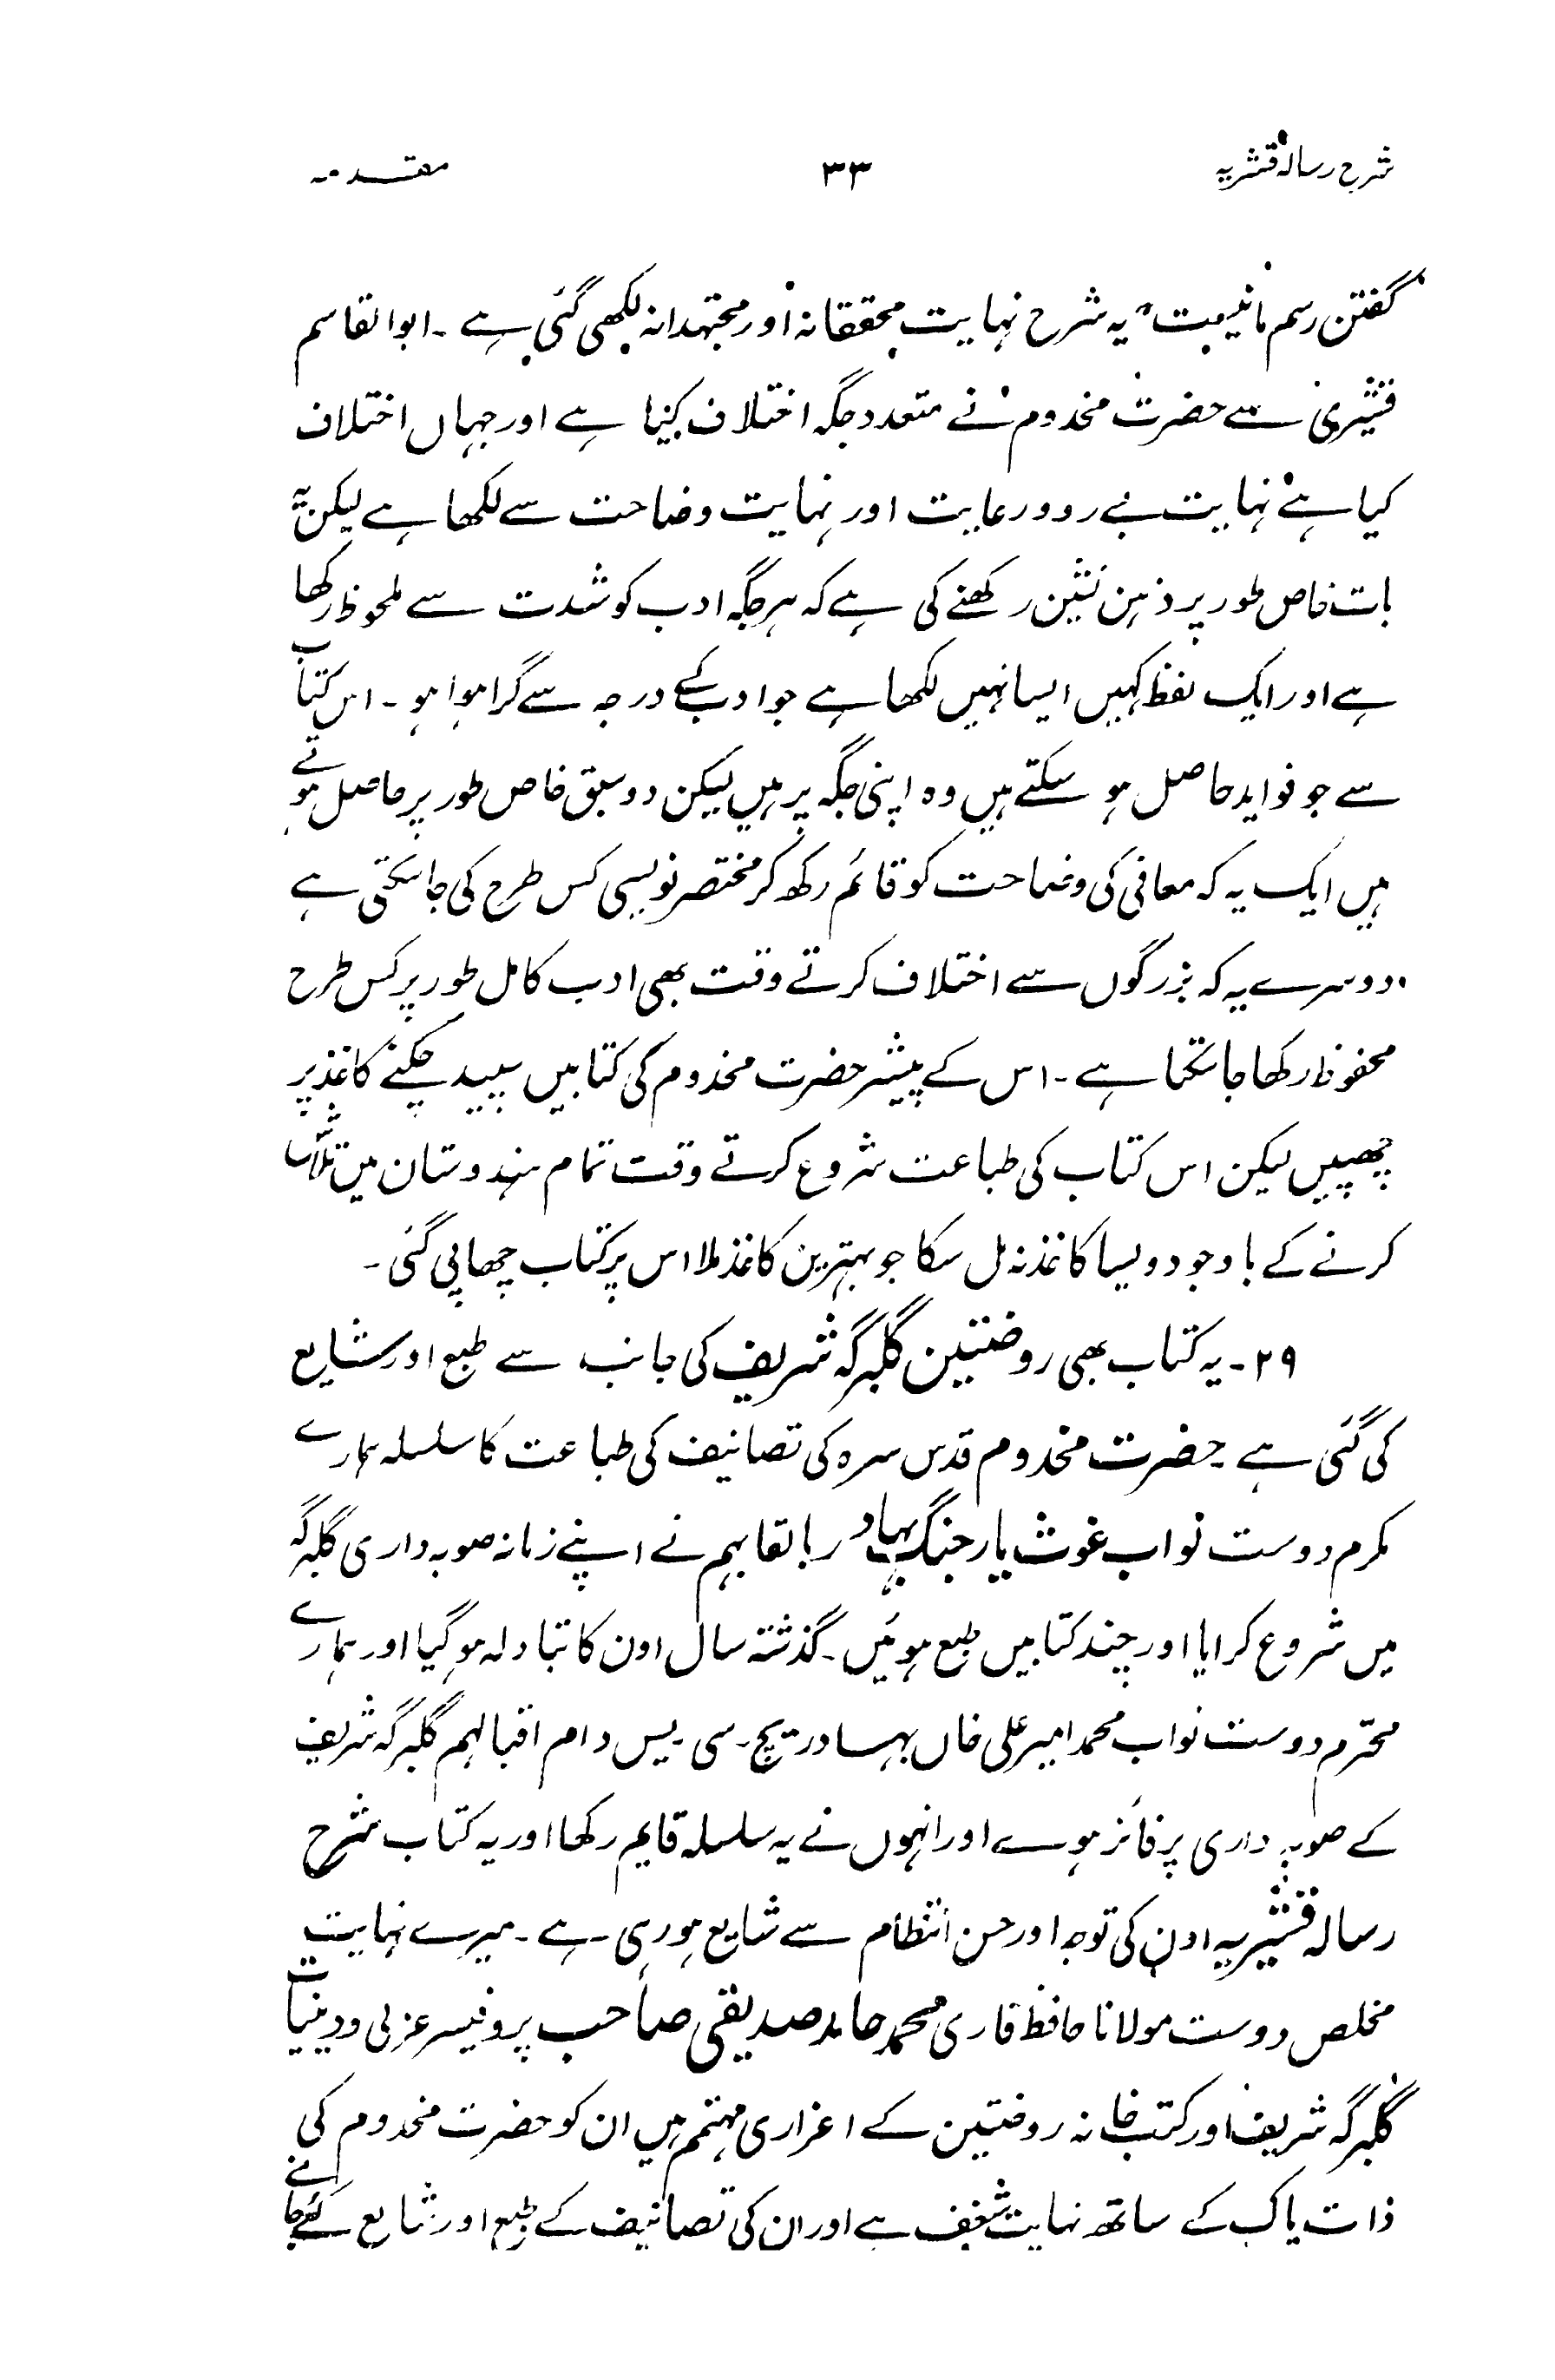 شرح رسالہ قشریہ ۳۳ مقدمہ
گفتن رسم مانیست" یہ شرح نہایت محققانہ اور مجتہدانہ لکھی گئی ہے ۔ ابوالقاسم
قشیری سے حضرت مخدوم نے متعدد جگہ اختلاف کیا ہے اور جہاں اختلاف
کیا ہے نہایت بے رو ورعایت اور نہایت وضاحت سے لکھا ہے لیکن یہ
بات خاص طور پر ذہن نشین رکھنے کی ہے کہ ہر جگہ ادب کو شدت سے ملحوظ رکھا
ہے اور ایک لفظ کہیں ایسا نہیں لکھا ہے جو ادب کے درجہ سے گرا ہوا ہو ۔ اس کتاب
سے جو فواید حاصل ہو سکتے ہیں وہ اپنی جگہ پر ہیں لیکن دو سبق خاص طور پر حاصل ہوتے
ہیں ایک یہ کہ معانی کی وضاحت کو قائم رکھ کر مختصر نویسی کس طرح کی جاسکتی ہے
دوسرے یہ کہ بزرگوں سے اختلاف کرتے وقت بھی ادب کامل طور پر کس طرح
محفوظ رکھا جاسکتا ہے ۔ اس کے پیشتر حضرت مخدوم کی کتابیں سپید چکنے کاغذ پر
چھپیں لیکن اس کتاب کی طباعت شروع کرتے وقت تمام ہندوستان میں تلاش
کرنے کے باوجود ویسا کاغذ نہ مل سکا جو بہترین کاغذ ملا اس پر کتاب چھاپی گئی ۔
۲۹ ۔ یہ کتاب بھی روضتین گلبرگہ شریف کی جانب سے طبع اور شایع
کی گئی ہے ۔ حضرت مخدوم قدس سرہ کی تصانیف کی طباعت کا سلسلہ ہمارے
مکرم دوست نواب غوث یار جنگ بہادر بالقابہم نے اپنے زمانہ صوبہ داری گلبرگہ
میں شروع کرایا اور چند کتابیں طبع ہوئیں ۔ گذشتہ سال اون کا تبادلہ ہوگیا اور ہمارے
محترم دوست نواب محمد امیر علی خاں بہادر یچ ۔ سی ۔ یس دام اقبالہم گلبرگہ شریف
کے صوبہ داری پر فائز ہوے اور انہوں نے یہ سلسلہ قایم رکھا اور یہ کتاب شرح
رسالہ قشیریہ اون کی توجہ اور حسن انتظام سے شایع ہورہی ہے ۔ میرے نہایت
مخلص دوست مولانا حافظ قاری محمد حامد صدیقی صاحب پروفیسر عربی ودینیات
گلبرگہ شریف اور کتب خانہ روضتین کے اعزازی مہتمم ہیں ان کو حضرت مخدوم کی
ذات پاک کے ساتھ نہایت شغف ہے اور ان کی تصانیف کے طبع اور شایع کئے جانے